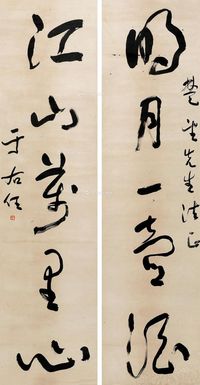 楚先生法正
明月一壺酒
江山萬里心
于右任